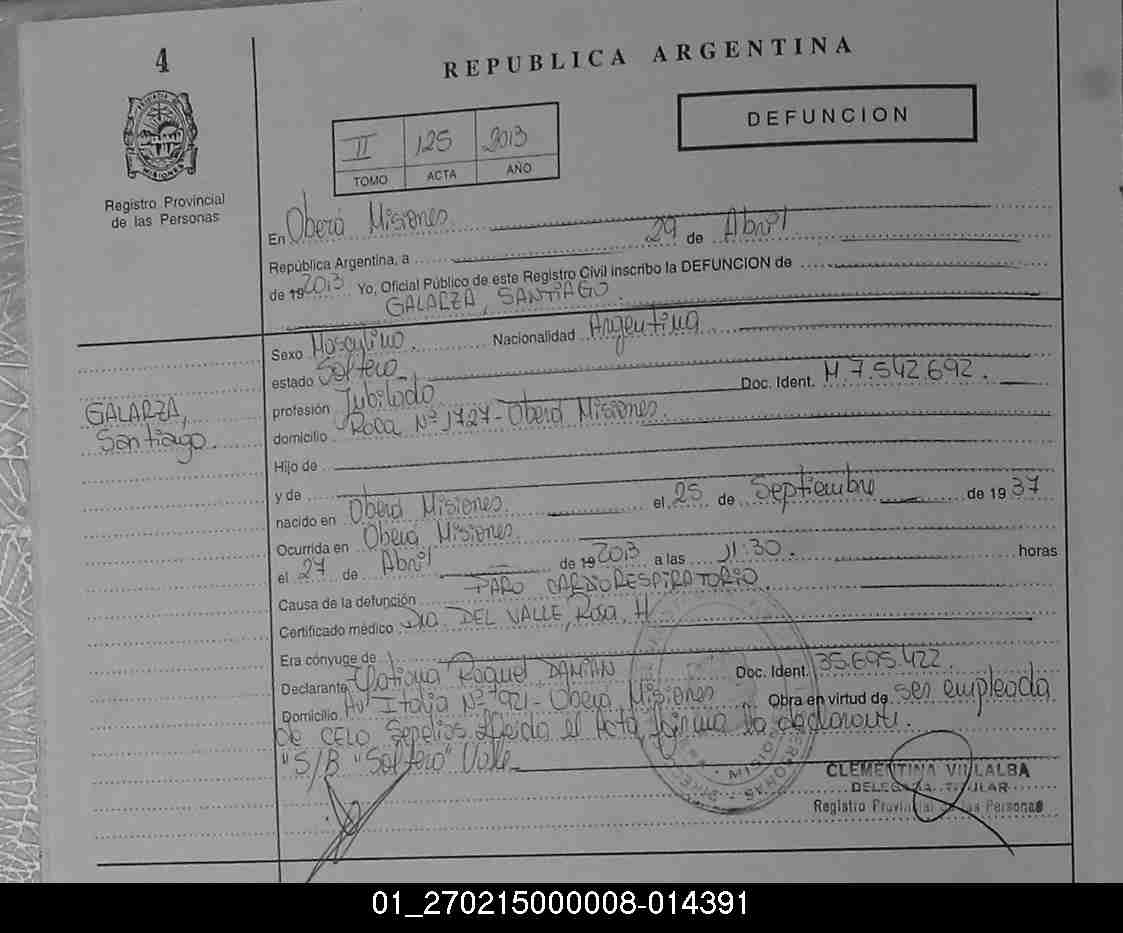 4
REPUBLICA ARGENTINA
DEFUNCION
II 125 2013
TOMO ACTA AÑO
Registro Provincial
de las Personas
En Oberá Misiones
República Argentina, a 29 de Abril
de 19 2013 Yo, Oficial Público de este Registro Civil inscribo la DEFUNCION de
GALARZA, SANTIAGO.
GALARZA,
Santiago
Sexo Masculino Nacionalidad Argentina
estado Soltero
profesión Jubilado Doc. Ident. M 7.542.692.
domicilio Roca Nº 1727 - Oberá Misiones.
Hijo de
y de
nacido en Oberá Misiones. el 25 de Septiembre de 1937
Ocurrida en Oberá Misiones.
el 27 de Abril de 19 2013 a las 11:30. horas
Causa de la defunción PARO CARDIORESPIRATORIO
Certificado médico Dra DEL VALLE, Rosa. H
Era cónyuge de
Declarante Tatiana Raquel DAMIAN Doc. Ident. 35.695.422.
Domicilio Av Italia Nº 921 - Oberá Misiones Obra en virtud de ser empleada
de CELO Sepelios leída el Acta firma la declarante.
"S/B "Soltero" Vale
CLEMENTINA VILLALBA
DELEGADA TITULAR
Registro Provincial de las Personas
01_270215000008-014391